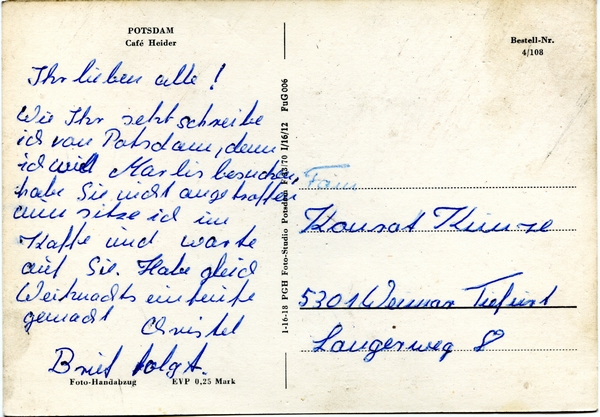 POTSDAM
Café Heider
Bestell-Nr.
4/108
Ihr lieben alle!
Wie Ihr setzt schreibe
ich von Potsdam, denn
ich will Marlis besuchen,
habe Sie nicht angetroffen
nun sitze ich im
Kaffe und warte
auf Sie. Habe gleich
Weihnachts einkeufe
gemacht Christel
Brief folgt.
Foto-Handabzug EVP 0,25 Mark
1-16-18 PGH Foto-Studio Potsdam I/16/12 FuG 006
Fam
Konrat Kunze
5301 Weimar Tiefurt
Langerweg 8